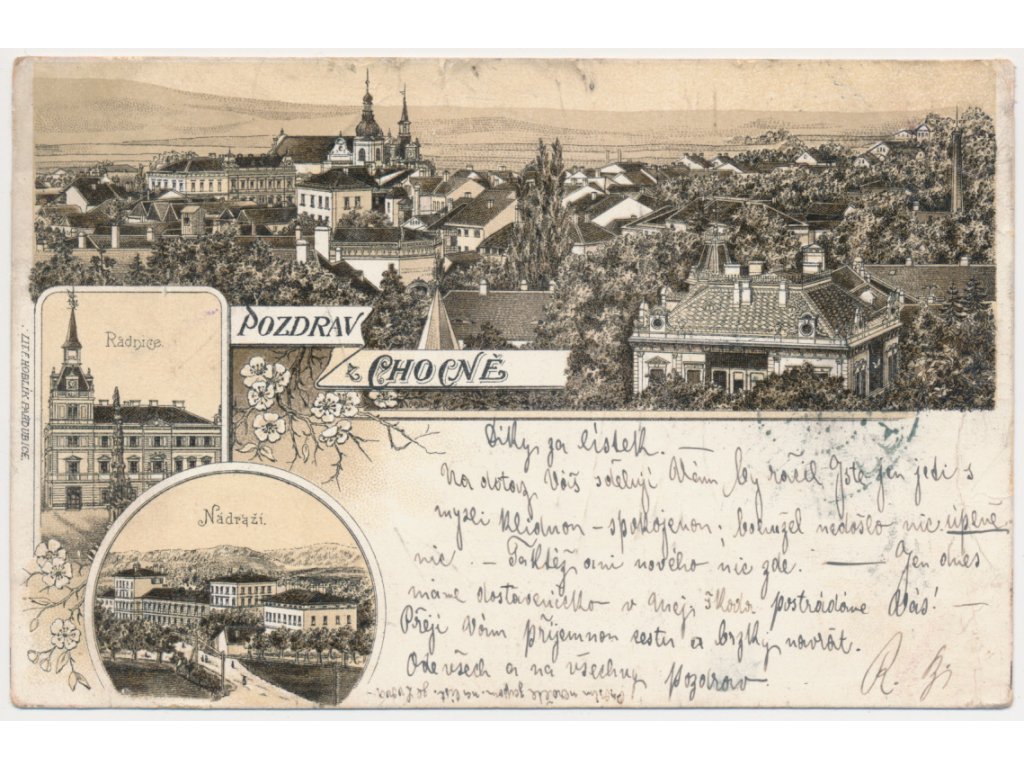 POZDRAV
z CHOCNĚ
Radnice.
Nádraží.
LIT. F. HOBLÍK, PARDUBICE.
Díky za lístek. —
Na dotaz Váš sděluji Vám, by ráčil Jste jen jedi s
myslí klidnou – spokojenou; bohužel nedošlo nic úplně
nic. — Taktéž ani nového nic zde. — Jen dnes
máme dostaveníčko v škoda postrádáme Vás! —
Přeji Vám příjemnou cestu a brzký navrát.
Ode všech a na všechny pozdrav.
R.